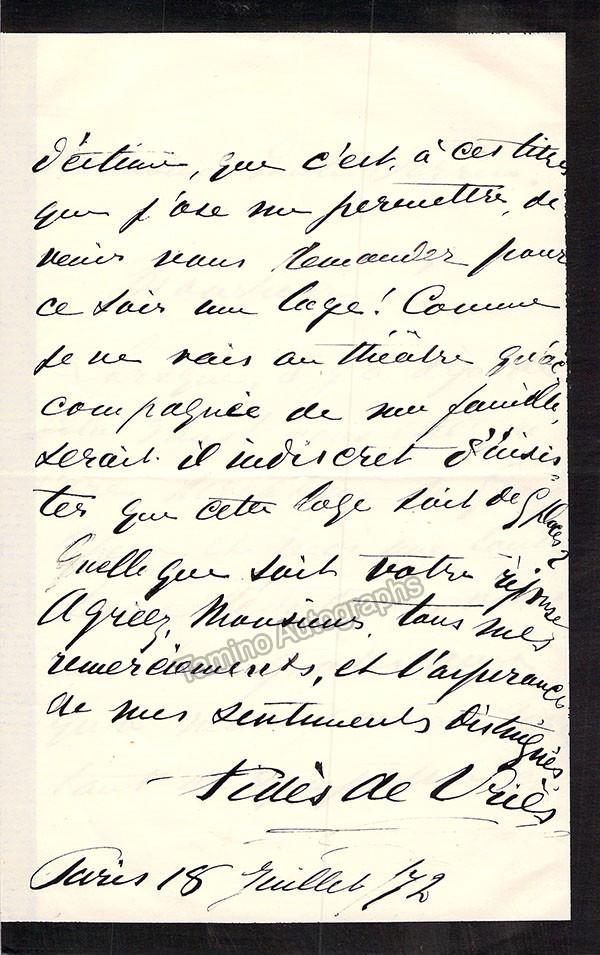 d'estime, que c'est à ces titres
que j'ose me permettre, de
venir vous demander pour
ce soir une loge! Comme
je ne vais au théâtre qu'ac
compagnée de ma famille,
serait il indiscret d'insis-
ter que cette loge soit de places?
Quelle que soit votre réponse
Agréez, Monsieur, tous mes
remerciements, et l'assurance
de mes sentiments distingués,
Fidès de Vriès
Paris 18 Juillet /72
Tamino Autographs